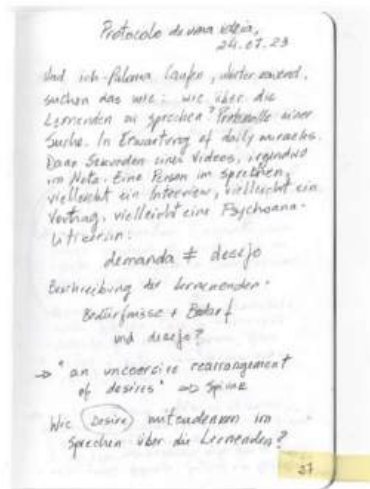 Protocolo de uma ideia,
24.07.23
Und ich-Paloma laufen, weiter
suchen das wie: wie über die
Lernenden zu sprechen? Protokolle einer
Suche. In Erwartung of daily miracles.
Dann Sekunden eines Videos, irgendwo
im Netz. Eine Person im sprechen,
vielleicht ein Interview, vielleicht ein
Vortrag, vielleicht eine Psychoana-
litikerin:
demanda ≠ desejo
Beschreibung der Lernenden:
Bedürfnisse + Bedarf
und desejo?
→ "an uncoercive rearrangement
of desires" ⇒ Spivak
Wie desire mitzudenken im
Sprechen über die Lernenden?
37